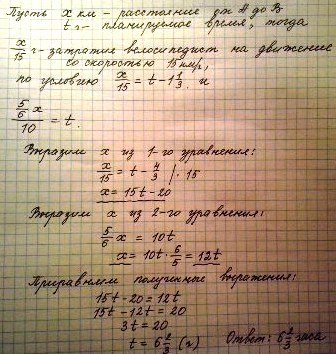 Пусть x км - расстояние от A до B
t ч - планируемое время, тогда
x/15 ч - затратил велосипедист на движение
со скоростью 15 км/ч,
по условию x/15 = t - 1 1/3 и
(5/6 x)/10 = t.
Выразим x из 1-го уравнения:
x/15 = t - 4/3 | · 15
x = 15t - 20
Выразим x из 2-го уравнения:
5/6 x = 10t
x = 10t · 6/5 = 12t
Приравняем полученные выражения:
15t - 20 = 12t
15t - 12t = 20
3t = 20
t = 6 2/3 (ч) Ответ: 6 2/3 часа